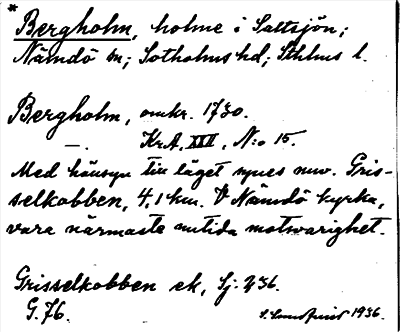 *
Bergholm, holme i Saltsjön;
Nämdö sn; Sotholms hd; Sthlms l.
Bergholm, omkr. 1730.
—. KrA, XIII, N:o 15.
Med hänsyn till läget synes nuv. Gris-
selkobben, 4,1 km. V Nämdö kyrka,
vara närmaste nutida motsvarighet.
Grisselkobben ek, Sj. 236.
G. 76. 1936.